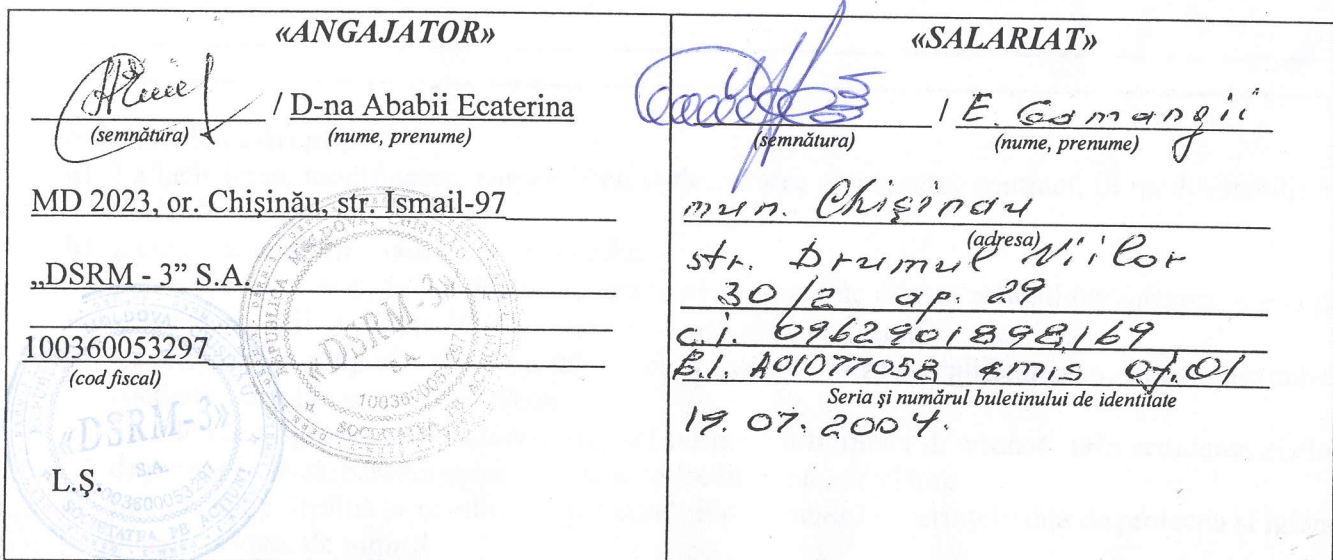 «ANGAJATOR»
/ D-na Ababii Ecaterina
(semnătura) (nume, prenume)
MD 2023, or. Chişinău, str. Ismail-97
„DSRM - 3” S.A.
100360053297
(cod fiscal)
«DSRM-3»
S.A.
«DSRM-3»
S.A.
1003600053297
L.Ş.
«SALARIAT»
/ E. Comangii
(semnătura) (nume, prenume)
mun. Chişinău
(adresa)
str. Drumul Viilor
30/2 ap. 29
c.i. 0962901898169
B.I. A01077058 emis 07.01
Seria şi numărul buletinului de identitate
19.07.2004.